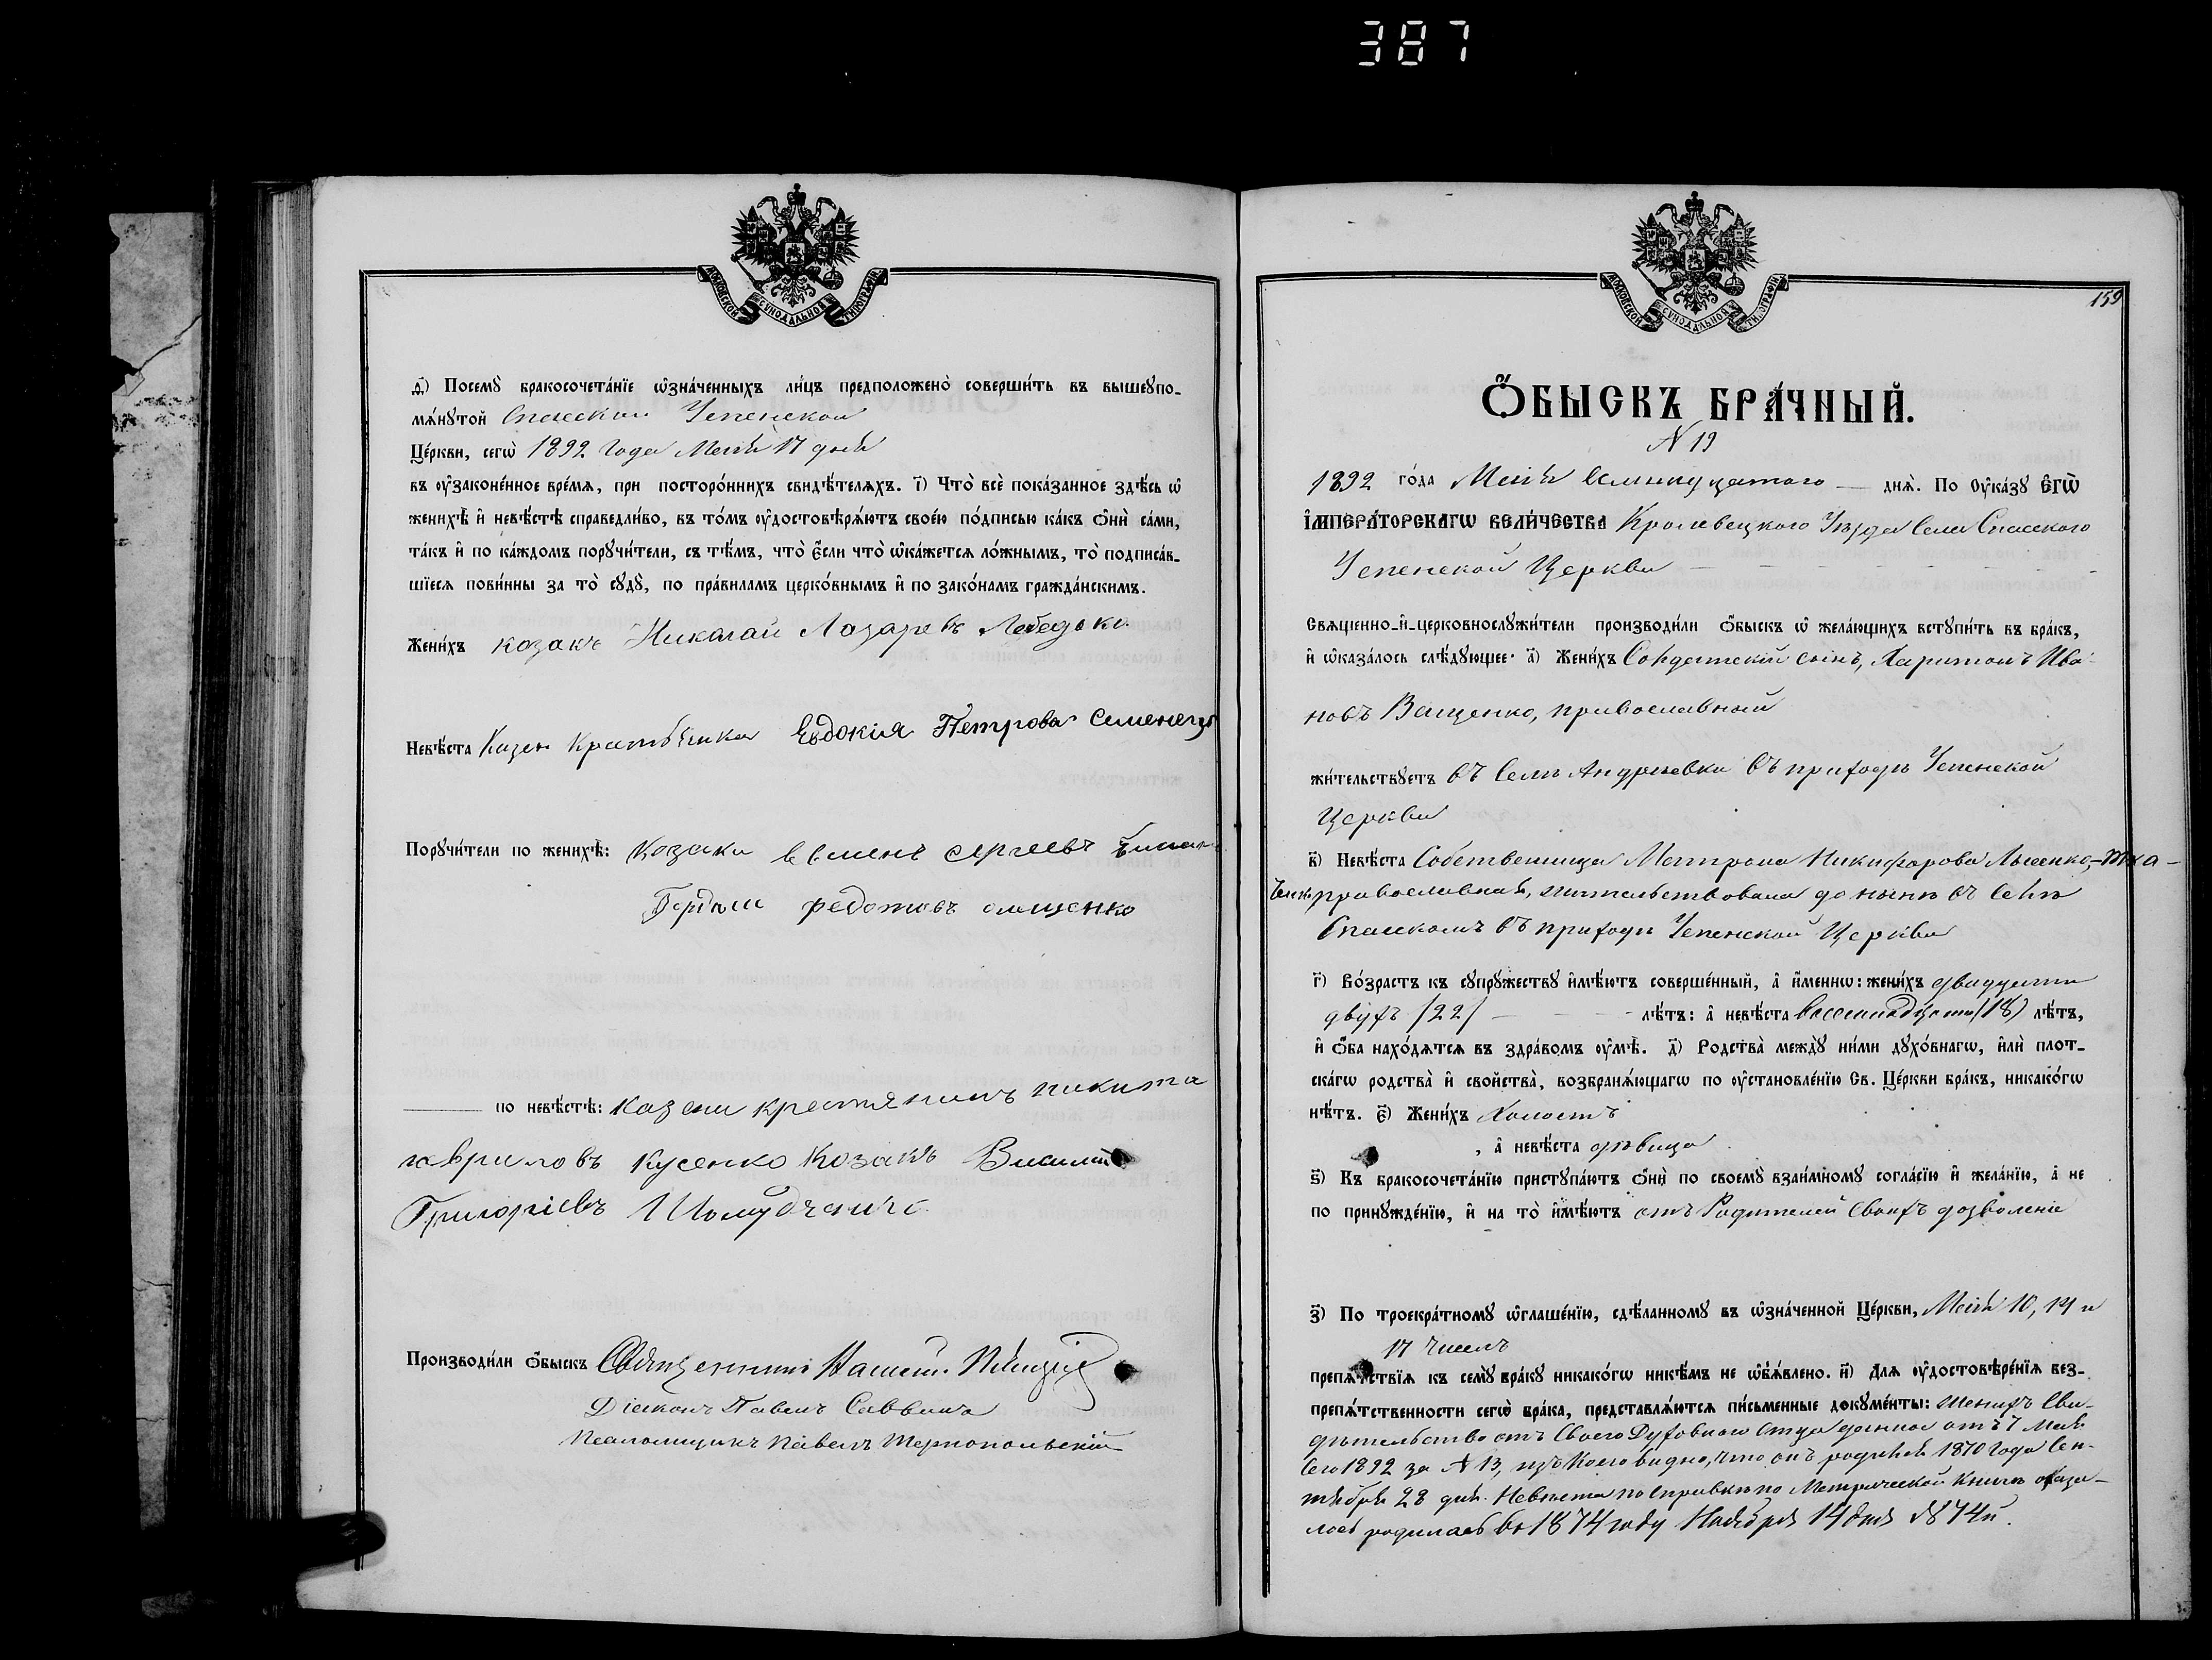 387
МОСКОВСКОЙ СѴНОДАЛЬНОЙ ТИПОГРАФІИ
д҃) Посемꙋ̀ бракосочета́нїе ѡ҆зна́ченныхъ ли́цъ предположено̀ соверши́ть въ вышеꙋпо-
мѧ́нꙋтой Спасской Успенской
Це́ркви, сегѡ̀ 1892 года Мая 17 дня
въ ᲂу҆законе́нное вре́мѧ, при посторо́ннихъ свидѣ́телѧхъ. і҃) Что̀ всѐ пока́занное здѣ́сь ѡ҆
женихѣ̀ и҆ невѣ́стѣ справедли́во, въ то́мъ ᲂу҆достовѣрѧ́ютъ свое́ю по́дписью ка́къ ѻ҆нѝ са́ми,
та́къ и҆ по ка́ждомъ порꙋчи́тели, съ тѣ́мъ, что̀ є҆́сли что̀ ѡ҆ка́жетсѧ ло́жнымъ, то̀ подписа́в-
шїесѧ пови́нны за то̀ сꙋдꙋ̀, по пра́виламъ церко́внымъ и҆ по зако́намъ гражда́нскимъ.
Жени́хъ козакъ Николай Лазаревъ Лебедько
Невѣ́ста Казен Крестьянка Евдокія Петрова Семенец
Порꙋчи́тели по женихѣ̀: Козаки Евменъ Сергеевъ
Гордѣи Федотовъ онищенко
по невѣ́стѣ: Казени крестянинъ никита
гавриловъ Кусенко Козакъ Василій
Григоріевъ
Производи́ли ѻ҆́быскъ Священникъ
Діаконъ Павелъ Саввичъ
Псаломщикъ Павелъ Тернопольскій
МОСКОВСКОЙ СѴНОДАЛЬНОЙ ТИПОГРАФІИ
159
Ѻ҆́БЫСКЪ БРА́ЧНЫЙ.
N 19
1892 го́да Мая Семнадцатого днѧ̀. По ᲂу҆ка́зꙋ Є҆ГѠ̀
І҆МПЕРА́ТОРСКАГѠ ВЕЛИ́ЧЕСТВА Кролевецкого Уѣзда Села Спасского
Успенской Церкви
Свѧщенно-и҆-церковнослꙋжи́тели производи́ли ѻ҆́быскъ ѡ҆ жела́ющихъ встꙋпи́ть въ бра́къ,
и҆ ѡ҆каза́лось слѣ́дꙋющее: а҃) Жени́хъ Солдатскій сынъ, Харитонъ Ива-
новъ Ващенко, православный
жи́тельствꙋетъ въ Селѣ Андреевки въ приходѣ Успенской
Церкви
в҃) Невѣ́ста Собственница Матрона Никифорова Лысенко,-Тка-
ченк православная, жительствовала до нынѣ въ Селѣ
Спасскомъ въ приходѣ Успенской Церкви
г҃) Во́зрастъ къ сꙋпрꙋ́жествꙋ и҆мѣ́ютъ соверше́нный, а҆ и҆́меннѡ: жени́хъ двадцати
двухъ /22/ лѣ́тъ: а҆ невѣ́ста восемнадцати (18) лѣ́тъ,
и҆ ѻ҆́ба нахо́дѧтсѧ въ здра́вомъ ᲂу҆мѣ̀. д҃) Родства̀ междꙋ̀ ни́ми дꙋхо́внагѡ, и҆лѝ плот-
ска́гѡ родства̀ и҆ свойства̀, возбранѧ́ющагѡ по ᲂу҆становле́нїю Св. Це́ркви бра́къ, никако́гѡ
нѣ́тъ. є҃) Жени́хъ Холостъ
, а҆ невѣ́ста дѣвица
ѕ҃) Къ бракосочета́нїю пристꙋпа́ютъ ѻ҆нѝ по своемꙋ̀ взаи́мномꙋ согла́сїю и҆ жела́нїю, а҆ не
по принꙋжде́нїю, и҆ на то̀ и҆мѣ́ютъ отъ Родителей своихъ дозволеніе
з҃) По троекра́тномꙋ ѡ҆глаше́нїю, сдѣ́ланномꙋ въ ѡ҆зна́ченной Це́ркви, Мая 10, 14 и
17 Чиселъ
препѧ́тствїѧ къ семꙋ̀ бра́кꙋ никако́гѡ никѣ́мъ не ѡ҆бъѧ́влено. и҃) Длѧ ᲂу҆достовѣре́нїѧ без-
препѧ́тственности сегѡ̀ бра́ка, представлѧ́ютсѧ пи́сьменные докꙋме́нты: Женихъ Сви-
дѣтельство отъ Своего Духовного Отца данное отъ 7 Мая
Сего 1892 за N 13, изъ Коего видно, что онъ родился 1870 года Сен-
тября 28 дня. Невѣста по справкѣ по Метрической Книгѣ оказа-
лось родилась въ 1874 году Ноября 14 дня 1874 г.